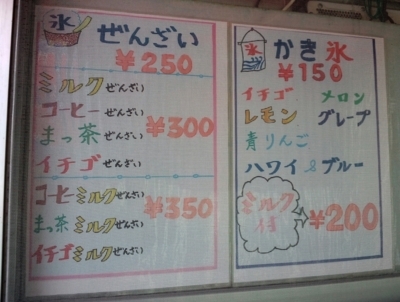 氷 ぜんざい
¥250
ミルクぜんざい
コーヒーぜんざい
まっ茶ぜんざい
イチゴぜんざい
¥300
コーヒーミルクぜんざい
まっ茶ミルクぜんざい
イチゴミルクぜんざい
¥350
氷 かき氷
¥150
イチゴ メロン
レモン グレープ
青りんご
ハワイ&ブルー
ミルク
¥200